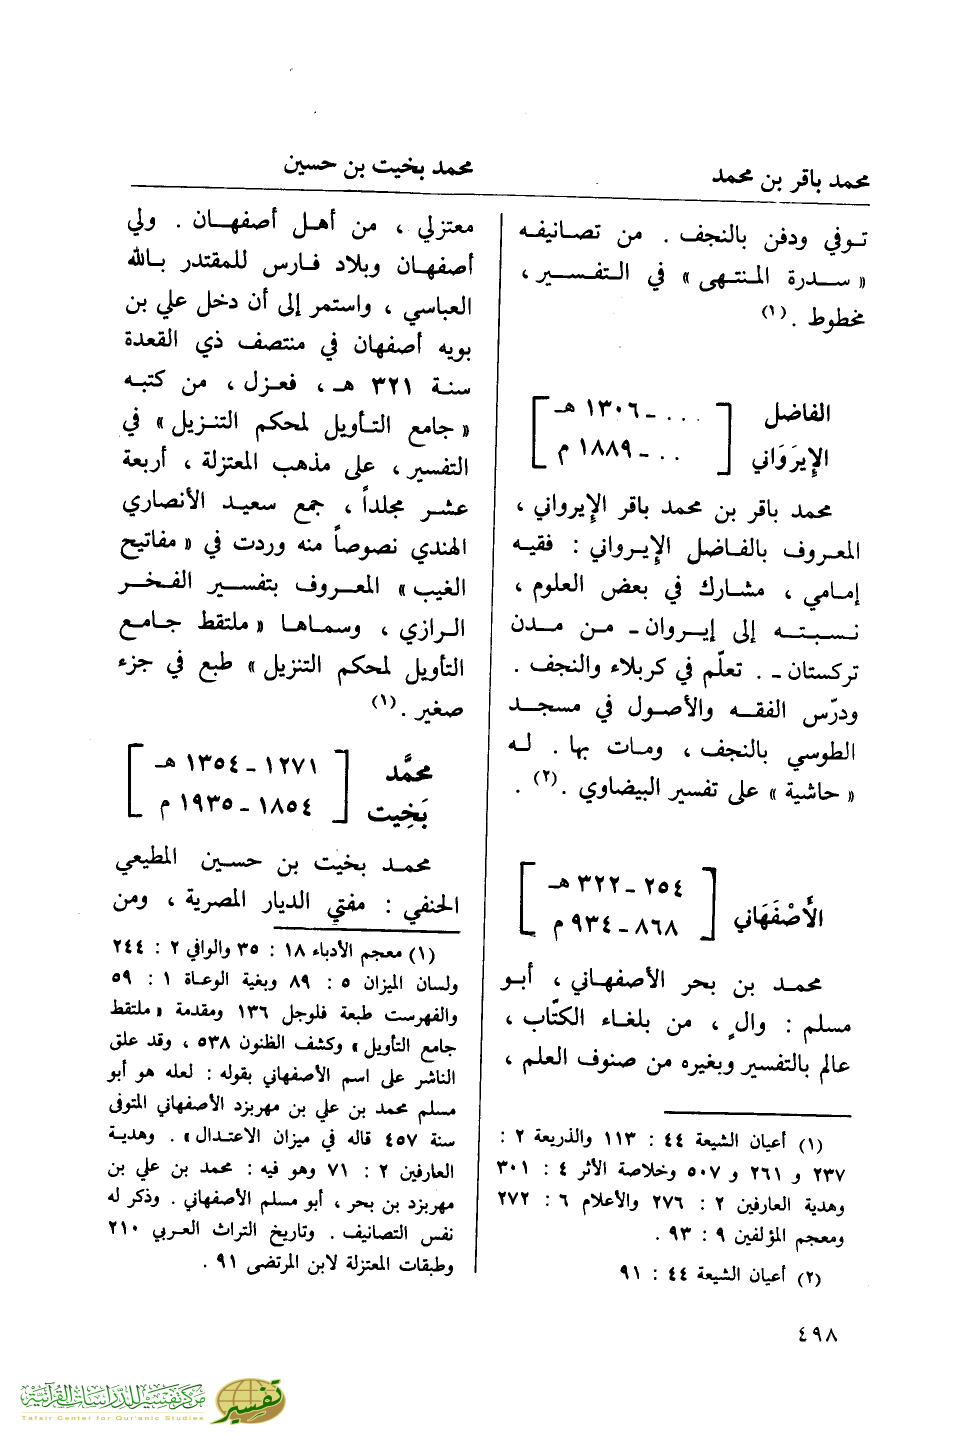 محمد باقر بن محمد
محمد بخيت بن حسين
تـوفي ودفن بالنجف . من تصـانيفـه
« سـدرة المـنتهى » في التـفسـير ،
مخطوط .(١)
الفاضل [ . . . ـ ١٣٠٦ هـ
الإِيرَوَاني . . . ـ ١٨٨٩ م ]
محمد باقر بن محمد باقر الإيرواني ،
المعروف بالفـاضل الإيـرواني : فقيـه
إمـامي ، مشـارك في بعض العلوم ،
نـسبتـه إلى إيـروان ـ مـن مـدن
تركستان ـ . تعلّم في كربلاء والنجف .
ودرّس الفقـه والأصـول في مسجـد
الطوسي بالنجف ، ومـات بها . لـه
« حاشية » على تفسير البيضاوي .(٢) .
الأَصْفَهَاني [ ٢٥٤ ـ ٣٢٢ هـ
٨٦٨ ـ ٩٣٤ م ]
محمـد بن بحر الأصفهـاني ، أبـو
مسلم : والٍ ، من بلغاء الكتّاب ،
عالم بالتفسير وبغيره من صنوف العلم ،
(١) أعيان الشيعة ٤٤ : ١١٣ والذريعة ٢ :
٢٣٧ و ٢٦١ و ٥٠٧ وخلاصة الأثر ٤ : ٣٠١
وهدية العارفين ٢ : ٢٧٦ والأعلام ٦ : ٢٧٢
ومعجم المؤلفين ٩ : ٩٣ .
(٢) أعيان الشيعة ٤٤ : ٩١
معتزلي ، من أهـل أصفهـان . ولي
أصفهـان وبلاد فـارس للمقتدر بـالله
العباسي ، واستمر إلى أن دخل علي بن
بويه أصفهان في منتصف ذي القعدة
سنـة ٣٢١ هـ ، فعـزل ، من كتبـه
« جامع التـأويل لمحكم التنـزيل » في
التفسير ، على مذهب المعتزلة ، أربعة
عشـر مجلداً ، جمع سعيـد الأنصاري
الهندي نصوصاً منه وردت في « مفاتيح
الغيب » المعـروف بتفسـير الفـخـر
الـرازي ، وسمـاهـا « ملتقط جـامـع
التأويل لمحكم التنزيل » طبع في جزء
صغير .(١)
محمَّد [ ١٢٧١ ـ ١٣٥٤ هـ
بَخِيت ١٨٥٤ ـ ١٩٣٥ م ]
محمـد بخيت بن حسـين المطيعي
الحنفي : مفتي الديار المصرية ، ومن
(١) معجم الأدباء ١٨ : ٣٥ والوافي ٢ : ٢٤٤
ولسان الميزان ٥ : ٨٩ وبغية الوعاة ١ : ٥٩
والفهرست طبعة فلوجل ١٣٦ ومقدمة « ملتقط
جامع التأويل » وكشف الظنون ٥٣٨ ، وقد علق
الناشر على اسم الأصفهاني بقوله : لعله هو أبو
مسلم محمد بن علي بن مهربزد الأصفهاني المتوفى
سنة ٤٥٧ قاله في ميزان الاعتـدال » . وهديـة
العارفين ٢ : ٧١ وهو فيه : محمد بن علي بن
مهربزد بن بحر ، أبو مسلم الأصفهاني . وذكر له
نفس التصانيف . وتاريخ التراث العربي ٢١٠
وطبقات المعتزلة لابن المرتضى ٩١ .
٤٩٨
مركز تفسير للدراسات القرآنية
Tafsir Center for Qur'anic Studies
تفسير